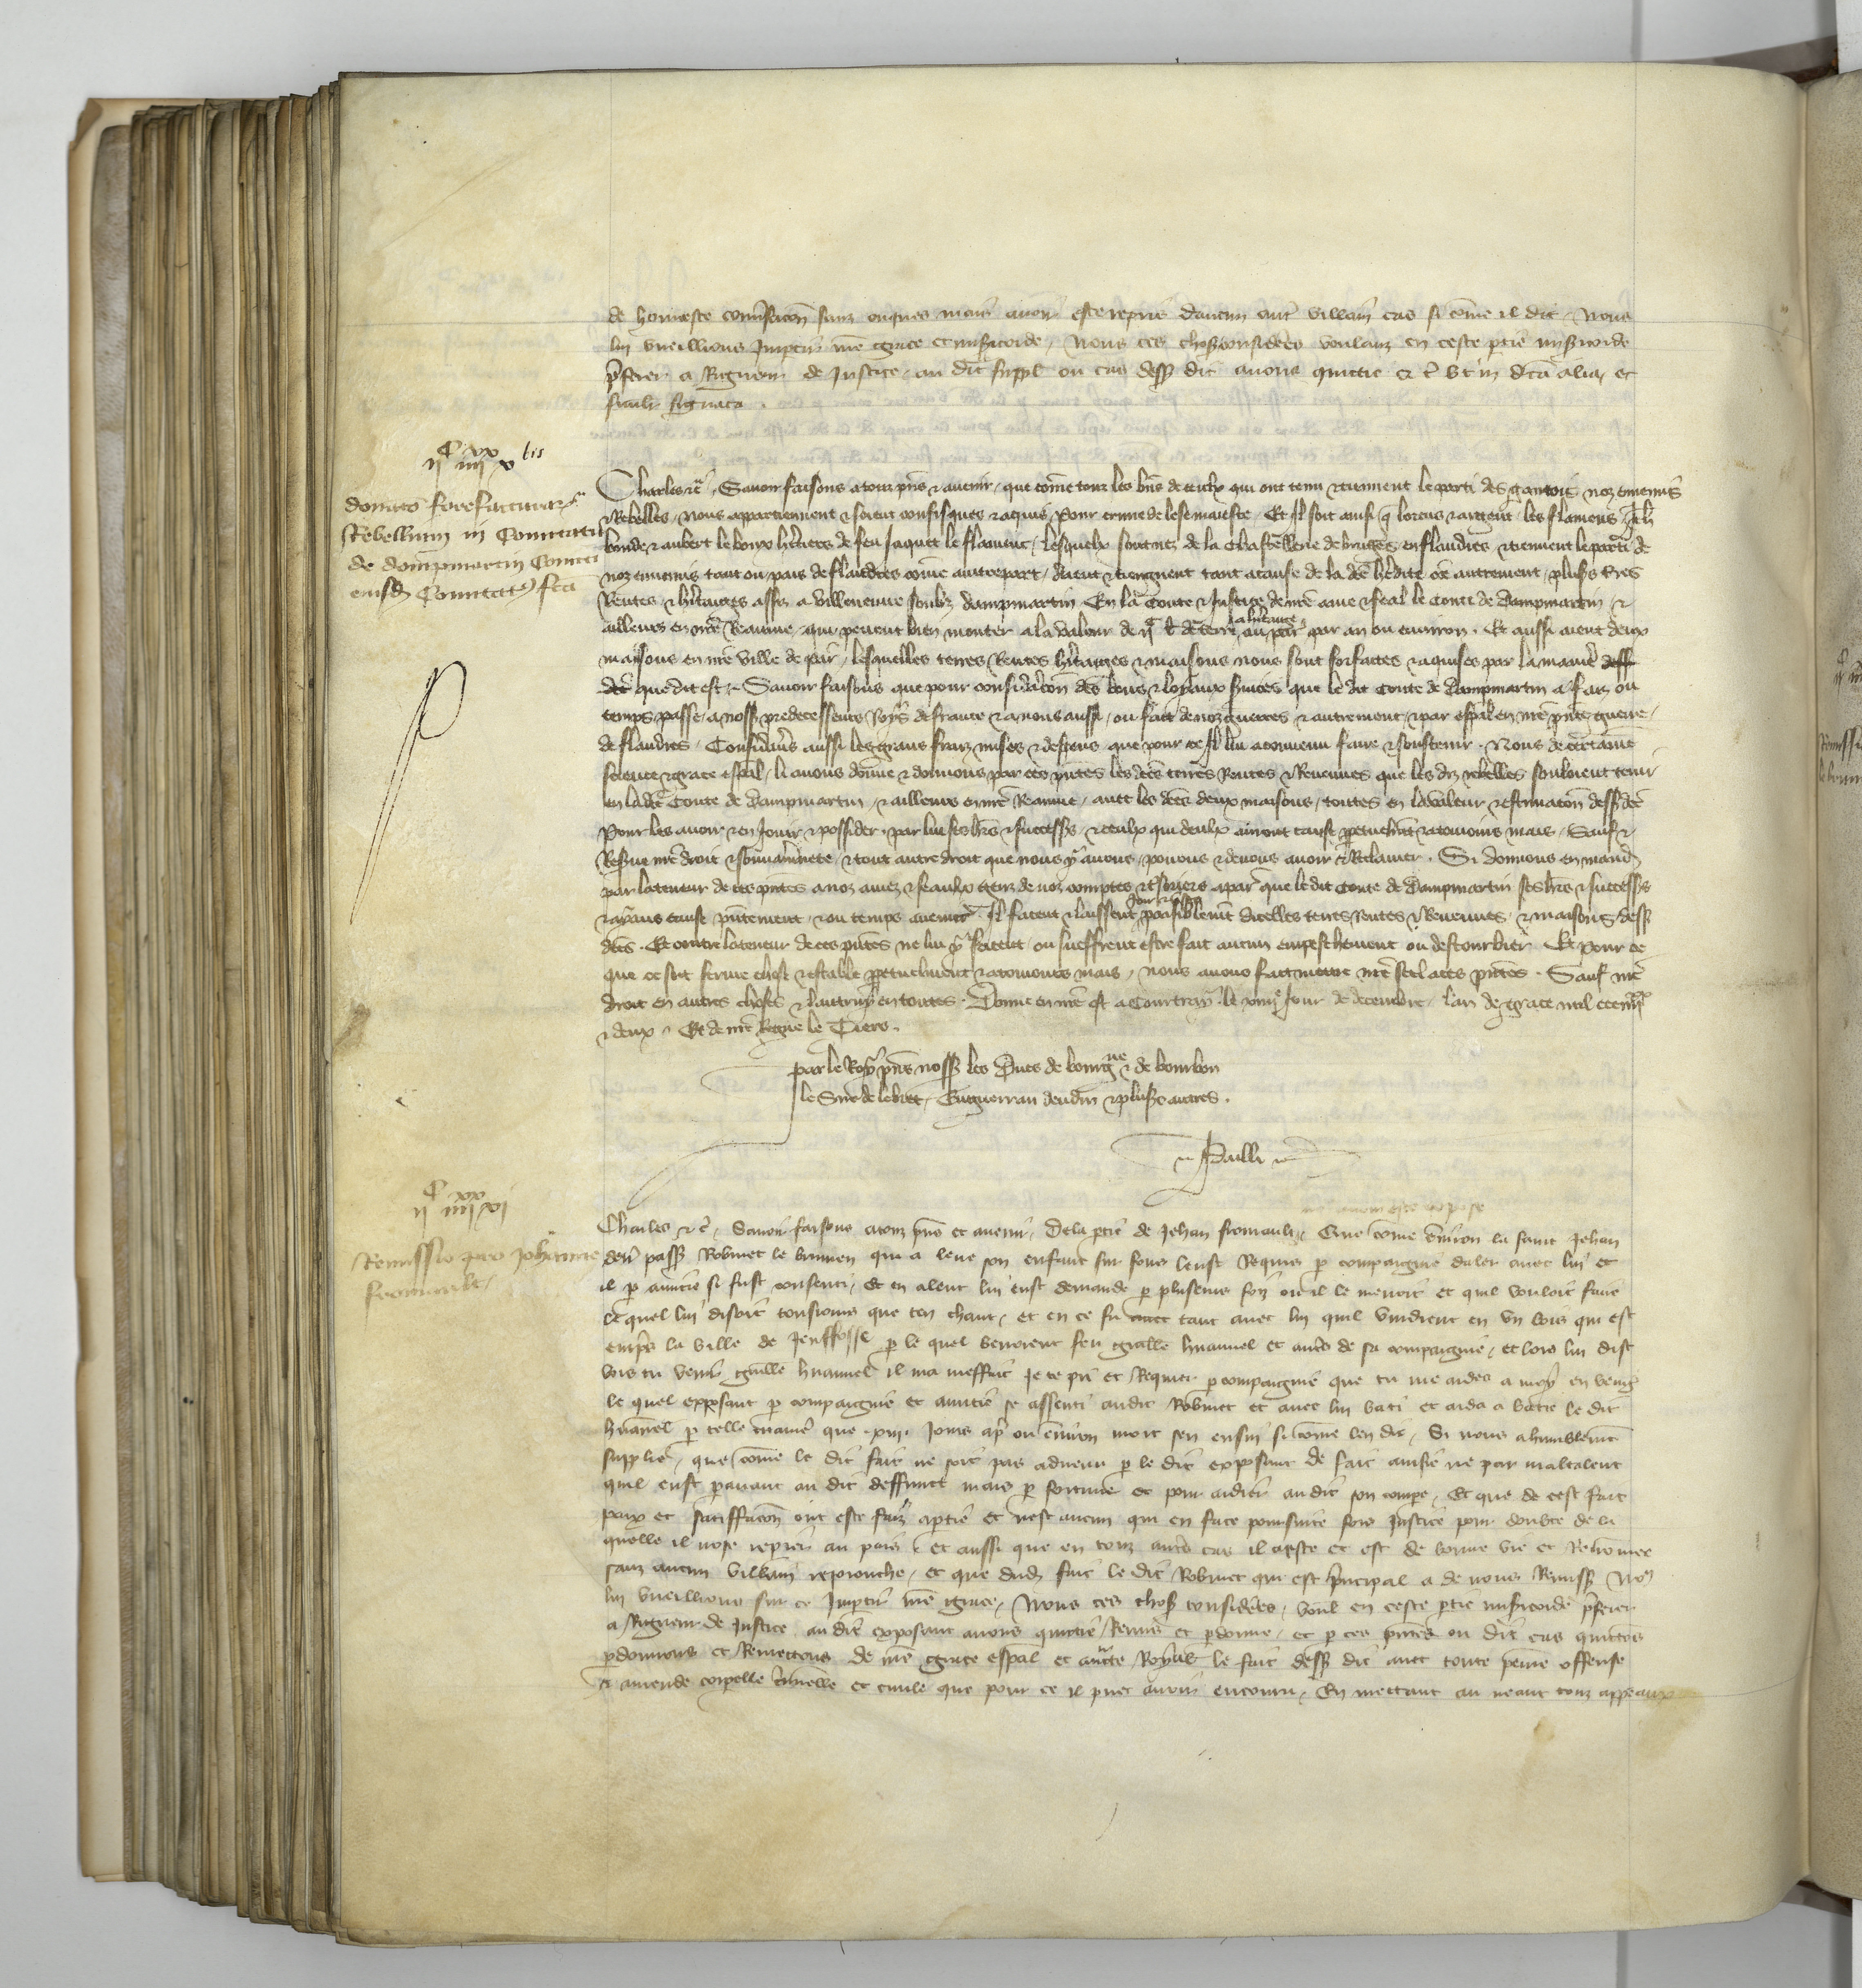 de honneste conversacion sanz onques mais avoir este repris daucun autre villain cas si come il dit / Nous
lui vueillions impartir nre grace et misericorde / Nous ces choses considerees voulanz en ceste partie misericorde
preferer a Rigueur de Justice / au dit suppl ou cas dessus dit avons quittie &c ut in dca alia et
simili signata .
C xx bis
ij iiij v
donatio forefacturar
Rebellium in Comitatu
de dompmartin Comiti
eiusd Comitatus fca
Charles &c . Savoir faisons a touz pns & avenir / que come touz les bns de ceulx qui ont tenu & tiennent le parti des gantois noz ennemis
& Rebelles / nous appartiennent & soient confisques & aquis pour crime de lese maieste / Et il soit ainsi q lorens & les flamens
& aubert le hers de feu Jaquet le flament / lesquelx sont nez de la Chastellerie de bruges en flandres & tiennent le parti de
noz ennemis tant ou pais de flandres come autrepart / aient & tiengnent tant a cause de la de autrement / plus terres
Rentes & heritages assis a villeneuve soubz dampmartin En la Conte & Justice de nre ame & feal le Conte de dampmartin / &
ailleurs en nre Reaume / qui pevent bien monter a la valeur de ij C l de terre a par par an ou environ . Et aussi aient deux
maisons en nre ville de par / lesquelles terres Rentes heritages & maisons nous sont forfaites & aquises par la maniere dess
dce que dit est / Savoir faisons que pour consideracion des bons & loyaux services que le dit Conte de dampmartin a faiz ou
temps passe / a noss predecesseurs Roys de france & a nous aussi / ou fait de noz guerres & autrement / & par espal en nre pnte guerre
de flandres / Considerans aussi les grans fraiz mises & despens que pour ce il lui a convenu faire & soustenir . Nous de certaine
science & grace espal / li avons donne & donnons par ces pntes les dces terres Rentes & Revenues que les diz rebelles souloient tenir
en la dce Conte de dampmartin / & ailleurs en nre Reaume / avec les dces deux maisons / toutes en la valeur & estimacion dess dce
Pour les avoir & en Jouir & possider par lui ses hers & successrs / & ceulx qui deulx auront cause perpetuelment & a touziours mais / Sauf &
Reserve nre droit & souvrainnete / & tout autre droit que nous y avons / povons & devons avoir & Reclamer . Si donnons en mand
par la teneur de ces pntes a noz amez & feaulx genz de noz comptes & tresoriers a par que le dit Conte de dampmartin ses hers & successrs
& ayans cause pntement & ou temps avenir / Il facent & laissent Jouir & user paisiblement dicelles terres Rentes & Revenues & maisons dess
dces . Et contre la teneur de ces pntes ne lui y facent / ou sueffrent estre fait aucun empeschement ou destourbier Et pour ce
que ce soit ferme chose & estable perpetuelment & a touziours mais / nous avons fait mettre nre seel a ces pntes . Sauf nre
droit en autres choses & lautruy en toutes . Donne en nre ost a Courtray le xiiije Jour de decembre / lan de grace mil ccc iiijxx
& deux / Et de nre Regne le Tiers .
par le Roy pns noss les Ducs de bourgne & de bourbon
le Sire de lebret / Enguerran deudin & pluss autres .
Pailli
C xx
ij iiij vj
Remissio pro Johanne
fromault
Charles &c . Savoir faisons a touz pns et avenir / De la partie de Jehan fromault / nous avoir este expose
Que come environ la saint Jehan
derr pass Robinet le brumen qui a leve son enfant sur fons leust Requis par compaignie daler avec lui et
il par amitie si fust consenti / Et en alent lui eust demande par pluseurs foiz ou il le menoit et quil vouloit faire
le quel lui disoit tousiours que ten chaut / et en ce fu tant avec lui quil vindrent en un bois qui est
empres la ville de Jeuffosse par le quel venoient feu guille huannel et autres de sa compaignie / et lors lui dist
vois tu venir guille huannel il ma meffait Je te pri et Requier par compaignie que tu me aides a moy en veng
le quel exposant par compaignie et amitie se assenti audit Robinet et avec lui bati et aida a batre le dit
huannel par telle maniere que .xiij. Jours apres ou environ mort sen ensui si come len dit / Si nous a humblement
supplie / que come le dit fait ne soit pas advenu par le dit exposant de fait apense ne par maltalent
quil eust paravant au dit deffunct mais par fortune et pour aidier au dit son compere / Et que de cest fait
paix et satiffacion ont este faiz a partie et nest aucun qui en face poursuite fors Justice pour doubte de la
quelle il nose reperier au pais / et aussi que en touz autres cas il a este et est de bonne vie et Renommee
sanz aucun villain reprouche / et que dud fait le dit Robinet qui est principal a de nous Remiss Nous
lui vueillions sur ce Impartir nre grace / Nous ces choses considerees / voul en ceste partie misericorde preferer
a Rigueur de Justice au dit exposant avons quittie Remis et pardonne / et par ces pntes ou dit cas quittons
pardonnons et Remettons de nre grace espal et aucte Royal le fait dess dit avec toute peine offense
et amende corporelle criminelle et civile que pour ce il puet avoir encouru / En mettant au neant touz appeaux